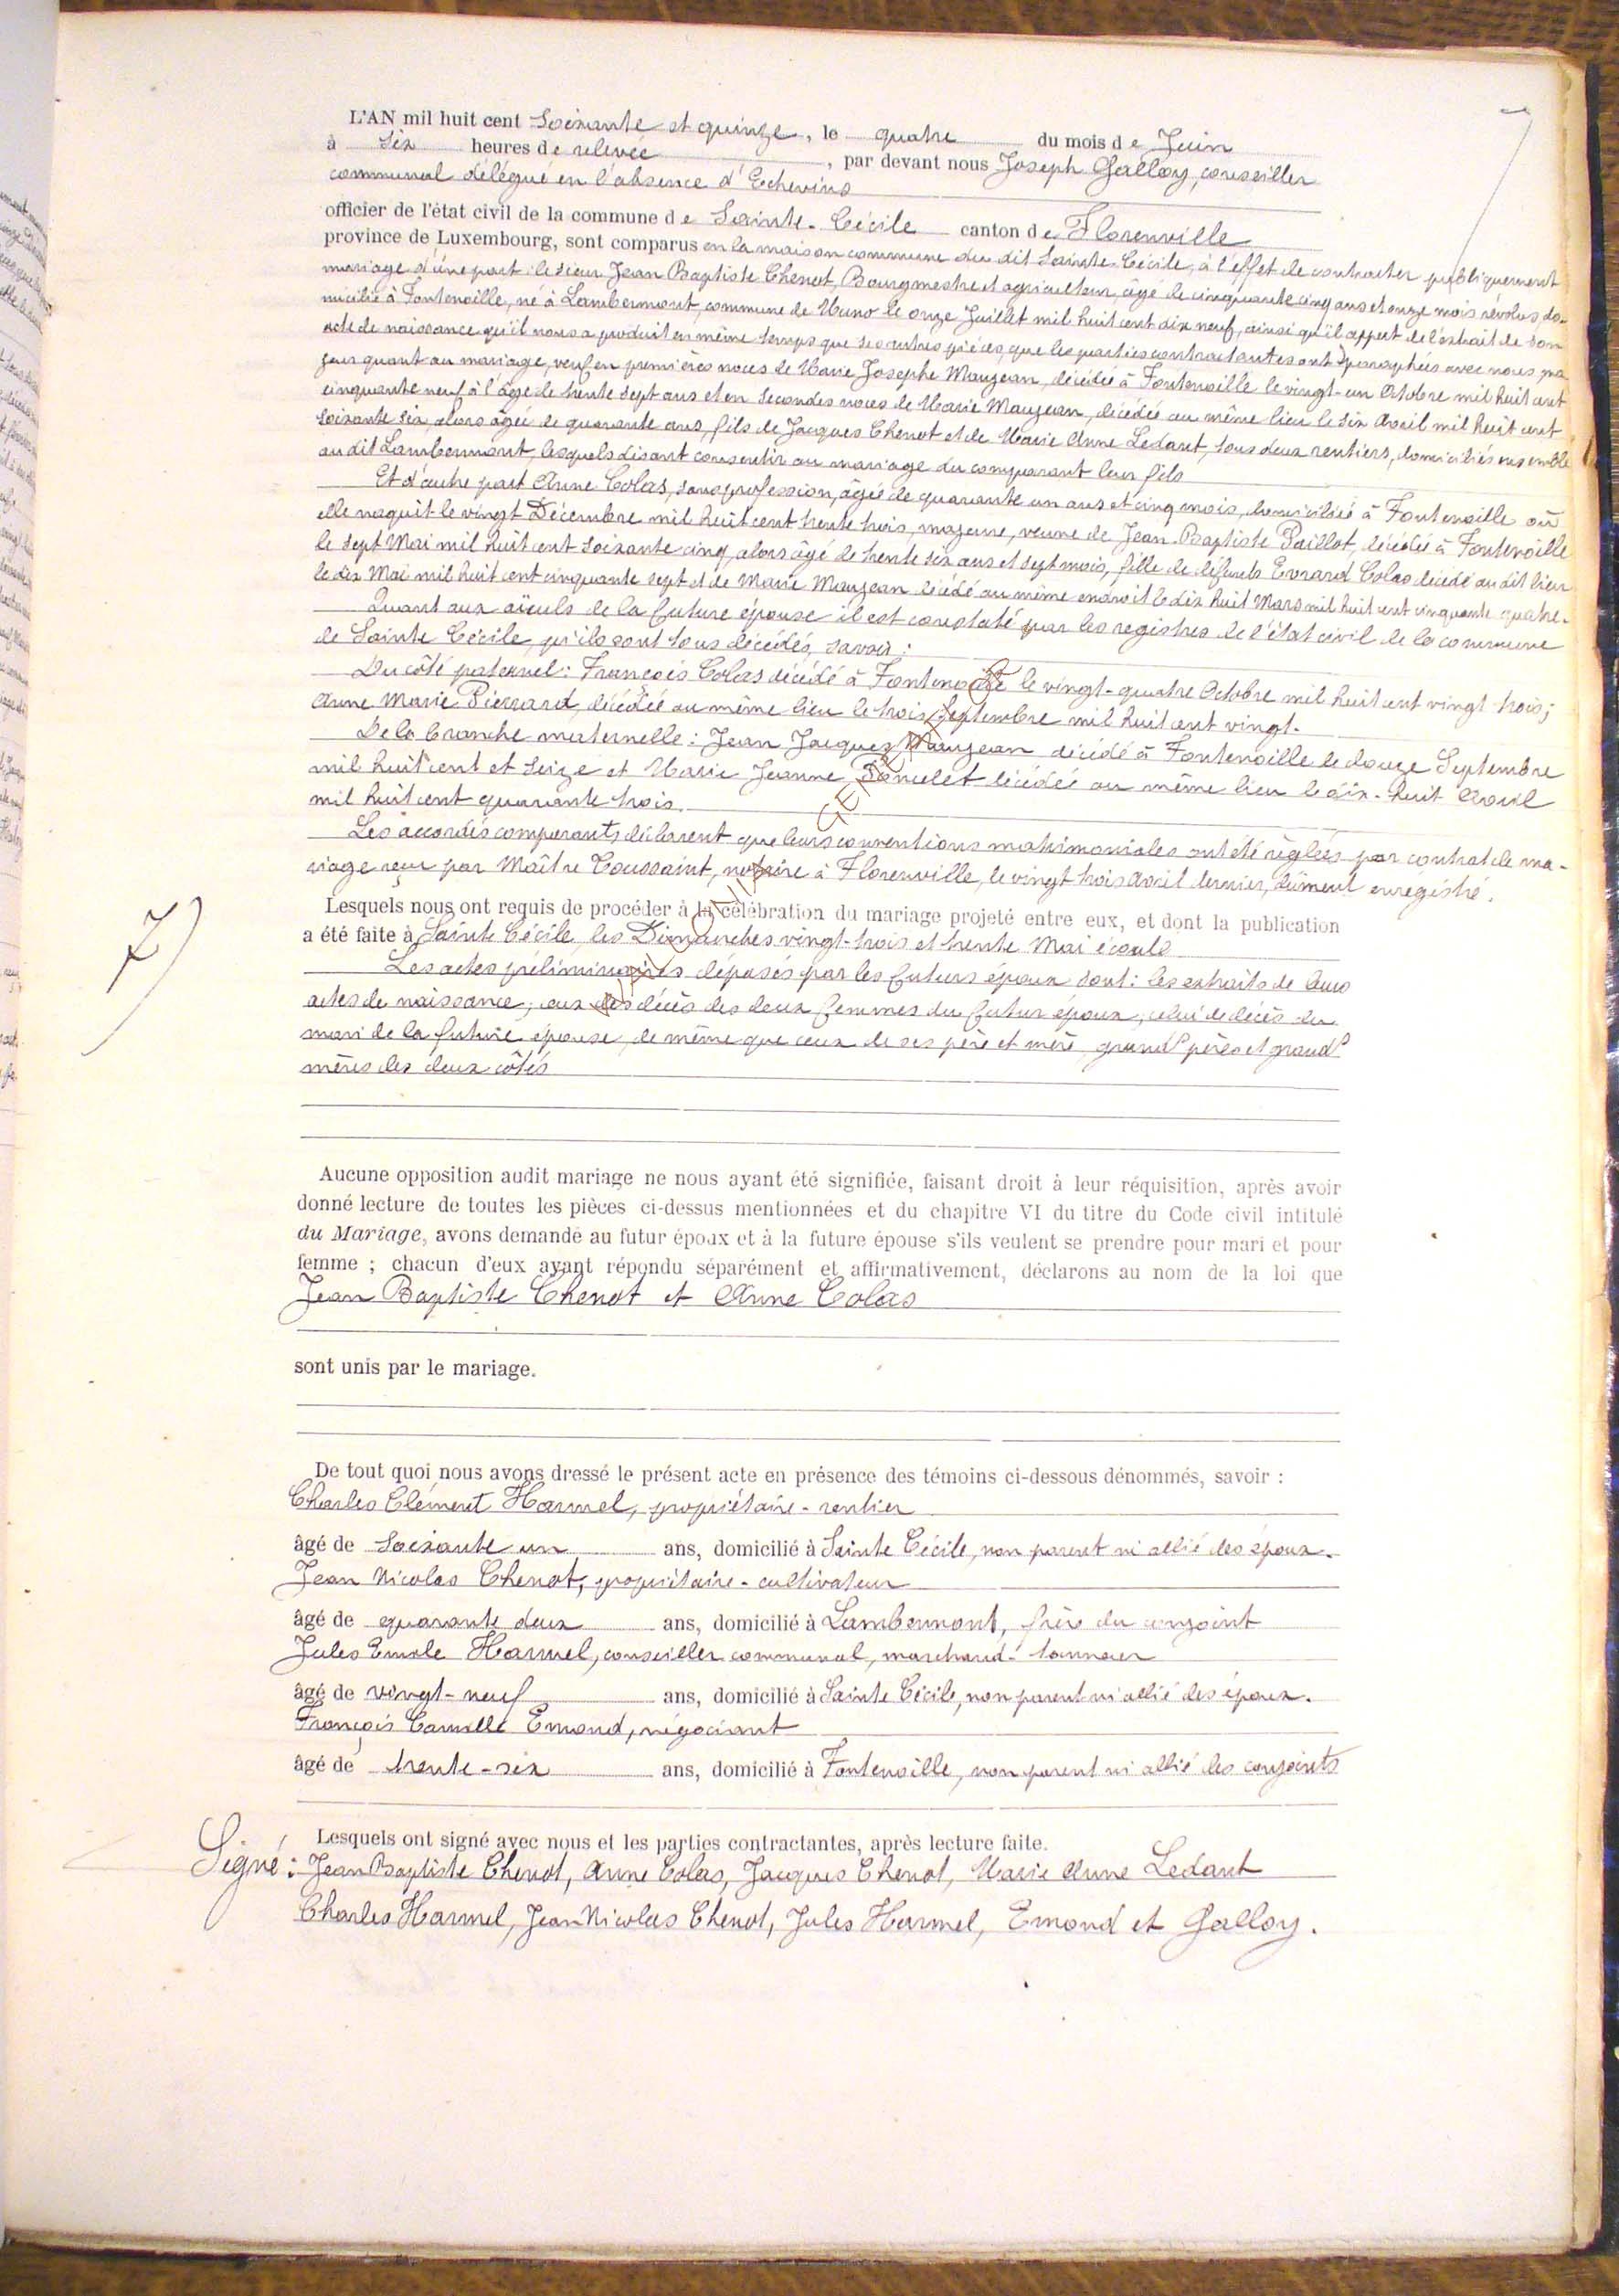 L'AN mil huit cent Soixante et quinze, le quatre du mois de Juin
à Six heures de relevée, par devant nous Joseph Galloy, conseiller
communal délégué en l'absence d'Echevins
officier de l'état civil de la commune de Sainte-Cécile canton de Florenville
province de Luxembourg, sont comparus en la maison commune du dit Sainte-Cécile, à l'effet de contracter publiquement
mariage d'une part: le sieur Jean Baptiste Chenot, Bourgmestre et agriculteur, âgé de cinquante cinq ans et onze mois révolus, do-
micilié à Fontenoille, né à Lambermont, commune de Muno le onze Juillet mil huit cent dix neuf, ainsi qu'il appert de l'extrait de son
acte de naissance qu'il nous a produit en même temps que ses autres pièces, que les parties contractantes ont paraphées avec nous, ma
jeur quant au mariage, veuf en premières noces de Marie Josephe Maujean, décédée à Fontenoille le vingt-un Octobre mil huit cent
cinquante neuf à l'âge de trente sept ans et en secondes noces de Marie Maujean, décédée au même lieu le six Avril mil huit cent
soixante six, alors âgée de quarante ans, fils de Jacques Chenot et de Marie Anne Ledant, tous deux rentiers, domiciliés ensemble
au dit Lambermont, lesquels disant consentir au mariage du comparant leur fils
Et d'autre part Anne Colas, sans profession, âgée de quarante un ans et cinq mois, domiciliée à Fontenoille où
elle naquit le vingt Décembre mil huit cent trente trois, majeure, veuve de Jean-Baptiste Paillot, décédé à Fontenoille
le sept Mai mil huit cent soixante cinq, alors âgé de trente six ans et sept mois, fille de défunts Evrard Colas décédé au dit lieu
le dix Mai mil huit cent cinquante sept et de Marie Maujean décédé au même endroit le dix huit Mars mil huit cent cinquante quatre.
Quant aux aïeuls de la future épouse il est constaté par les registres de l'état civil de la commune
de Sainte Cécile, qu'ils sont tous décédés, savoir:
Du côté paternel: François Colas décédé à Fontenoille le vingt-quatre Octobre mil huit cent vingt trois;
Anne Marie Pierrard, décédée au même lieu le trois Septembre mil huit cent vingt.
De la branche maternelle: Jean Jacques Maujean décédé à Fontenoille le douze Septembre
mil huit cent et seize et Marie Jeanne Poncelet décédée au même lieu le dix-huit Avril
mil huit cent quarante trois.
Les accordés comparants déclarent que leurs conventions matrimoniales ont été réglées par contrat de ma-
riage reçu par Maître Toussaint, notaire à Florenville, le vingt trois Avril dernier, dûment enrégistré.
Lesquels nous ont requis de procéder à la célébration du mariage projeté entre eux, et dont la publication
a été faite à Sainte Cécile les Dimanches vingt-trois et trente Mai écoulé
Les actes préliminaires déposés par les futurs époux sont: les extraits de leurs
actes de naissance; ceux des décès des deux femmes du futur époux, celui de décès du
mari de la future épouse, de même que ceux de ses père et mère, grands pères et grands
mères des deux côtés
7)
Aucune opposition audit mariage ne nous ayant été signifiée, faisant droit à leur réquisition, après avoir
donné lecture de toutes les pièces ci-dessus mentionnées et du chapitre VI du titre du Code civil intitulé
du Mariage, avons demandé au futur époux et à la future épouse s'ils veulent se prendre pour mari et pour
femme ; chacun d'eux ayant répondu séparément et affirmativement, déclarons au nom de la loi que
Jean Baptiste Chenot et Anne Colas
sont unis par le mariage.
De tout quoi nous avons dressé le présent acte en présence des témoins ci-dessous dénommés, savoir :
Charles Clément Harmel, propriétaire-rentier
âgé de Soixante un ans, domicilié à Sainte Cécile, non parent ni allié des époux.
Jean Nicolas Chenot, propriétaire-cultivateur
âgé de quarante deux ans, domicilié à Lambermont, frère du conjoint
Jules Emile Harmel, conseiller communal, marchand-tanneur
âgé de vingt-neuf ans, domicilié à Sainte Cécile, non parent ni allié des époux.
François Camille Emond, négociant
âgé de trente-six ans, domicilié à Fontenoille, non parent ni allié des conjoints
Lesquels ont signé avec nous et les parties contractantes, après lecture faite.
Signé: Jean Baptiste Chenot, Anne Colas, Jacques Chenot, Marie Anne Ledant
Charles Harmel, Jean Nicolas Chenot, Jules Harmel, Emond et Galloy.